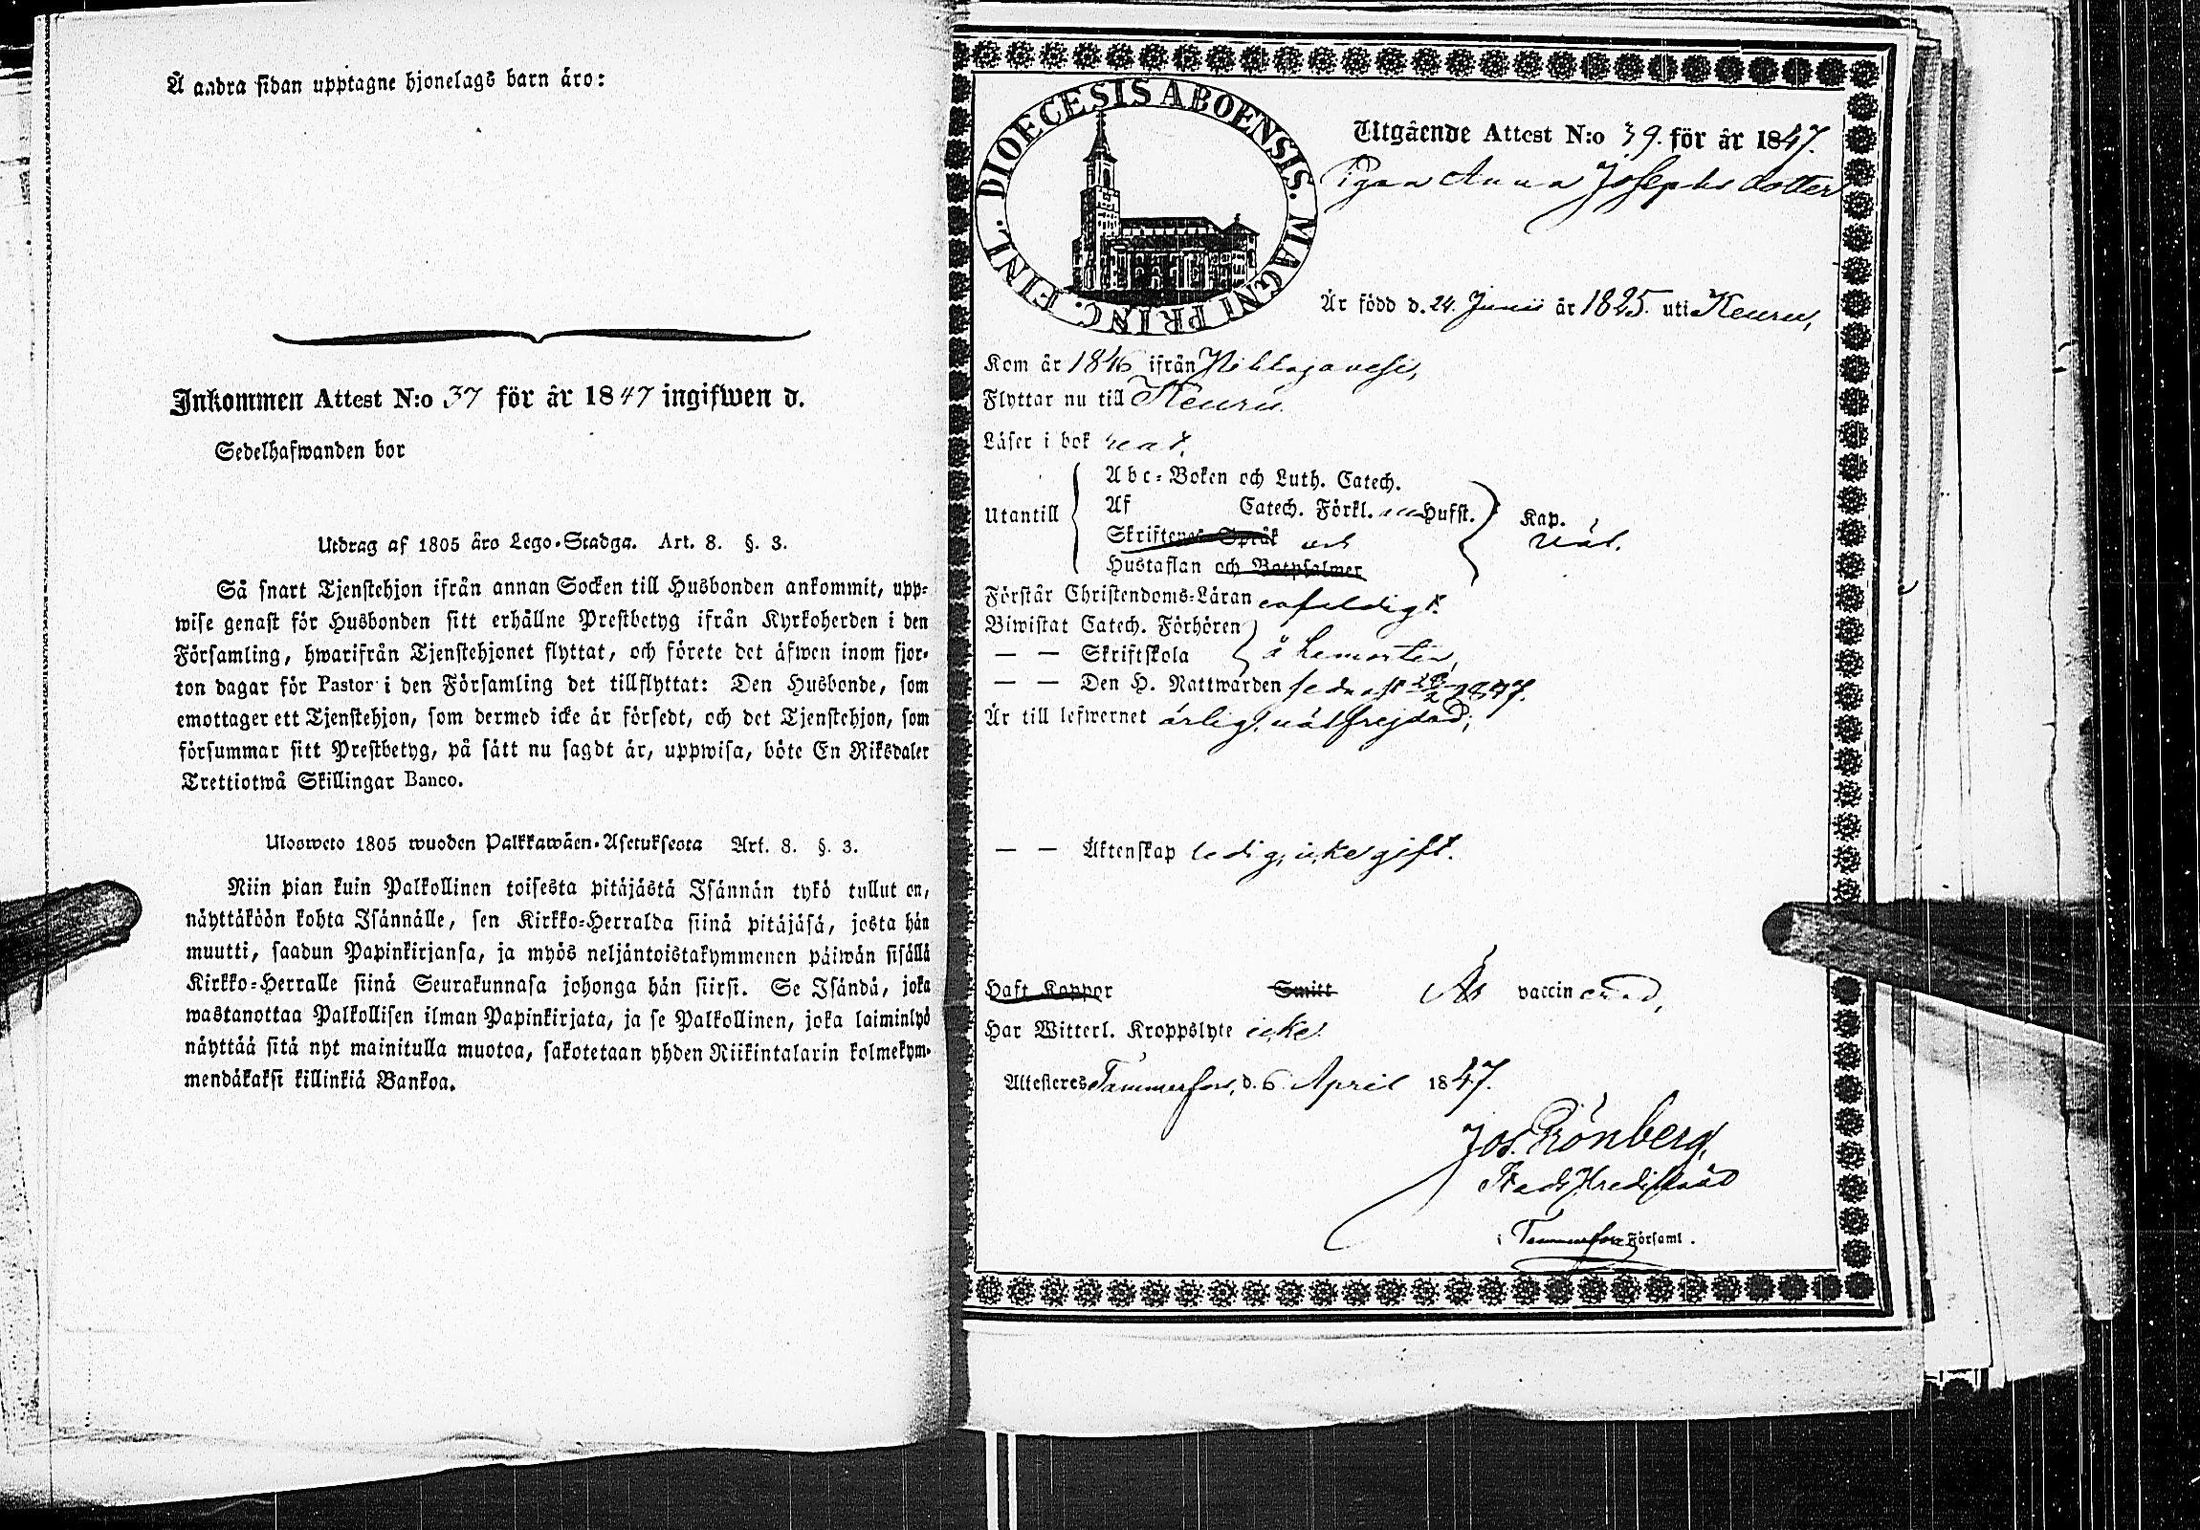 Å andra sidan upptagne hjonelags barn äro:
Inkommen Attest N:o 37 för år 1847 ingifwen d.
Sedelhafwanden bor
Utdrag af 1805 åro Lego-Stadga. Art. 8. §. 3.
Så snart Tjenstehjon ifrån annan Socken till Husbonden ankommit, upp-
wise genast för Husbonden sitt erhållne Prestbetyg ifrån Kyrkoherden i den
Församling, hwarifrån Tjenstehjonet flyttat, och förete det äfwen inom fjor-
ton dagar för Pastor i den Församling det tillflyttat: Den Husbonde, som
emottager ett Tjenstehjon, som dermed icke är försedt, och det Tjenstehjon, som
försummar sitt Prestbetyg, på sätt nu sagdt är, uppwisa, böte En Riksdaler
Trettiotwå Skillingar Banco.
Ulosweto 1805 wuoden Palkkawäen-Asetuksesta Art. 8. §. 3.
Niin pian kuin Palkollinen toisesta pitäjästä Isännän tykö tullut on,
näyttäköön kohta Isännälle, sen Kirkko-Herralda siinä pitäjäsä, josta hän
muutti, saadun Papinkirjansa, ja myös neljäntoistakymmenen päiwän sisällä
Kirkko-Herralle siinä Seurakunnasa johonga hän siirsi. Se Isändä, joka
wastanottaa Palkollisen ilman Papinkirjata, ja se Palkollinen, joka laiminlyö
näyttää sitä nyt mainitulla muotoa, sakotetaan yhden Riikintalarin kolmekym-
mendäkaksi killinkiä Bankoa.
DIOECESIS ABOENSIS. MAGNI PRINC. FINL.
Utgående Attest N:o 39. för år 1847.
Pigan Anna Josephsdotter
Är född d. 24. Junii år 1825. uti Keuru,
Kom år 1846 ifrån
Flyttar nu till Keuru.
Läser i bok
Utantill
Abc-Boken och Luth. Catech.
Af Catech. Förkl. Hufst. Kap.
Skriftenes Språk och wäl.
Hustaflan och Botpsalmer
Förstår Christendoms-Läran enfaldigt.
Biwistat Catech. Förhören
— — Skriftskola å hemorten,
— — Den H. Nattwarden sednast 28/2 1847.
Är till lefwernet ärlig, wälfrejdad,
— — Äktenskap ledig, icke gift.
Haft Koppor Smitt Är vaccinerad,
Har Witterl. Kroppslyte icke.
Attesteres Tammerfors, d. 6 April 1847.
Jos. Grönberg,
i Tammerfors Församl.